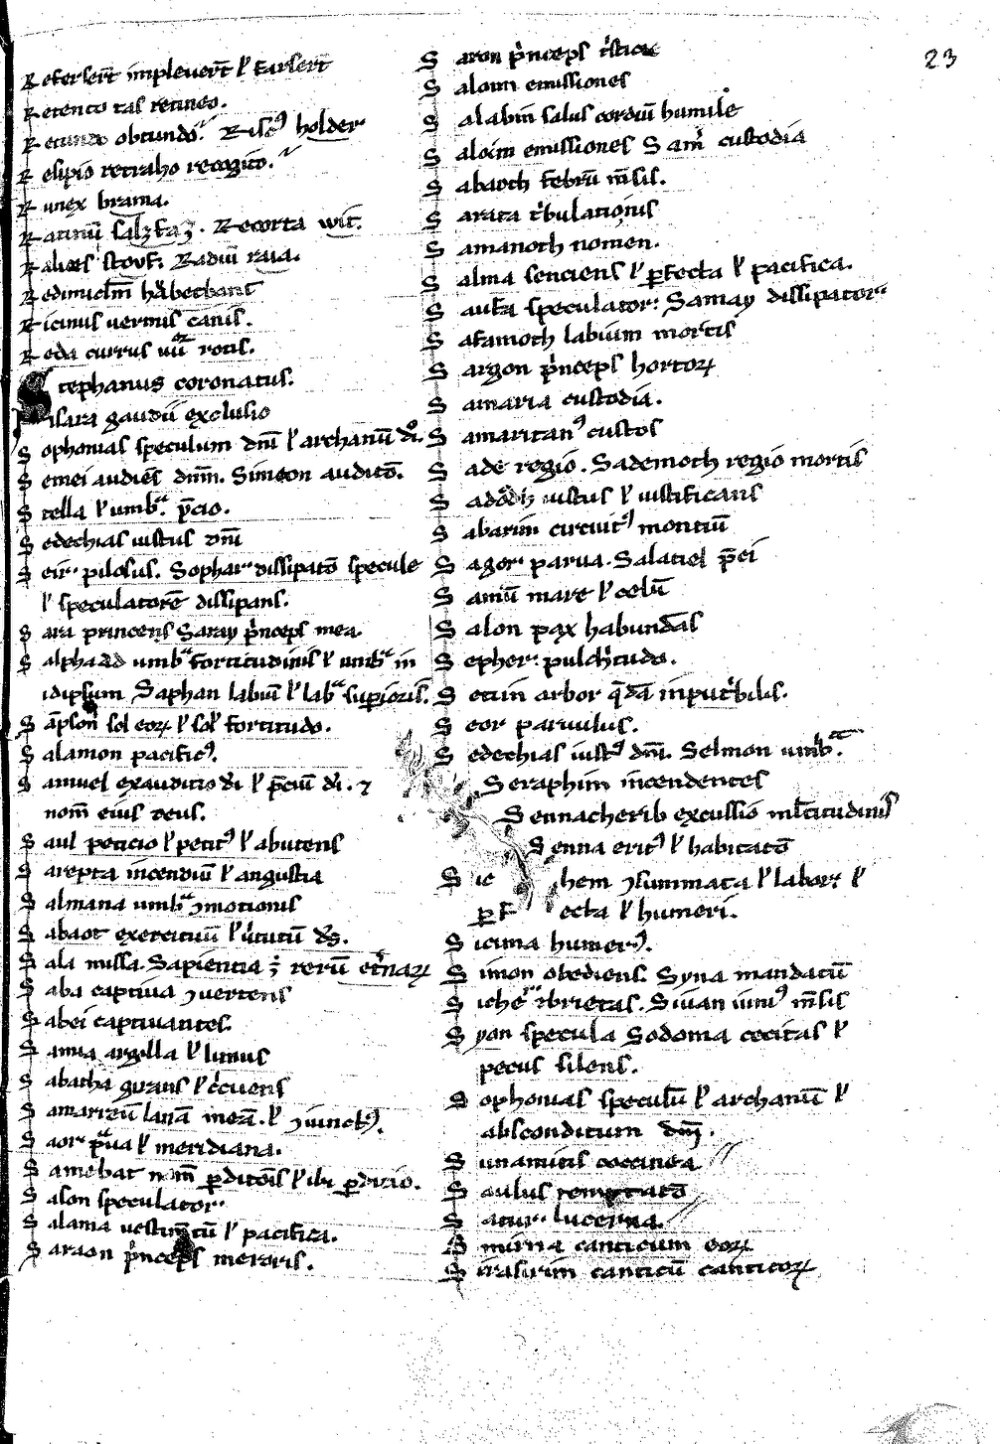 Refersert̄ implevert̄ ł farsert̄
Retento tas retineo.
Retundo obtundo. Riscꝰ holder
Resipio retraho recogito.
Runex brama.
Ratinū salzfaz. Recorta wit.
Ralices stouf: Radiuī raia.
Redimiclm̄ harbetbant
Ricinus vermis canis.
Reda currus iiiior rotis.
Stephanus coronatus.
Sisara gaudii exclusio
Sophonias speculum dnī ł archanū dī.
Semei audiēs dnm̄. Simeon auditō.
Stella ł umbra p̄cio.
Sedechias iustus dnī
Seir pilosus. Sophar dissipatō specule
ł speculatorē dissipans.
Sara princens Saray prīnceps mea.
Salphaad umbra fortitudinis ł umbra in
idipsum Saphan labiū ł labra superioris.
Sāpson sol eoꝝ ł sol fortitudo.
Salamon pacificꝰ.
Samuel exauditio dī ł p̄ciū dī. ⁊
nom̄ eius deus.
Saul peticio ł petitꝰ ł abutens
Sarepta incendiū ł angustia
Salmana umbra ꝯmotionis
Sabaot exercituū ł virtutū ds̄.
Sala missa. Sapientia ē rerū etn̄aꝝ
Saba captiva ꝯvertens
Sabei captivantes.
Samia argilla ł limus
Sabatha girans ł circuens
Samaritū lanā meā. ł ꝯiunctꝰ.
Saor praua ł meridiana.
Samebat nom̄ ꝑditōis ł ibi ꝑditio.
Sason speculator
Salania vestimtū ł pacifica.
Saraon prīnceps meroris.
Saron prīnceps tristicie
Saloim emissiones
Salabin salus cordiū humile
Saloim emissiones Samr custodia
Sabaoth februū mēsis.
Sarata tribulationis
Samanoth nomen.
Salma senciens ł ꝑfecta ł pacifica.
Saufra speculator: Samay dissipator
Safamoth labium mortis
Sargon prīnceps hortoꝝ
Samaria custodia.
Samaritanꝰ custos
Sade regio. Sademoth regio mortis
Sadodh iustus ł iustificans
Sabarim circuitꝰ montiū
Sagor parva. Salatiel p̄ei
Samū mare ł celū
Salon pax habundās
Sepher: pulchritudo.
Setin arbor q̄dā inputribilis.
Seor parvulus.
Sedechias iustꝰ dnī. Selmon umbra.
Seraphim incendentes
Sennacherib excussio multitudinis
Senna eritꝰ ł habitatō
Sichem ꝯsummata ł labor ł
ꝑfecta ł humeri.
Sicima humerꝰ.
Simon obediens. Syna mandatū
Siche ebrietas. Sivan iuniꝰ mēsis
Syon specula Sodoma cecitas ł
pecus silens.
Sophonias speculū ł archanū ł
absconditum dnī.
Sunamitis coccinea
Saulus temptatō
Satur lucerna.
Smirna canticum eoꝝ
Sirasirim canticū canticoꝝ
23